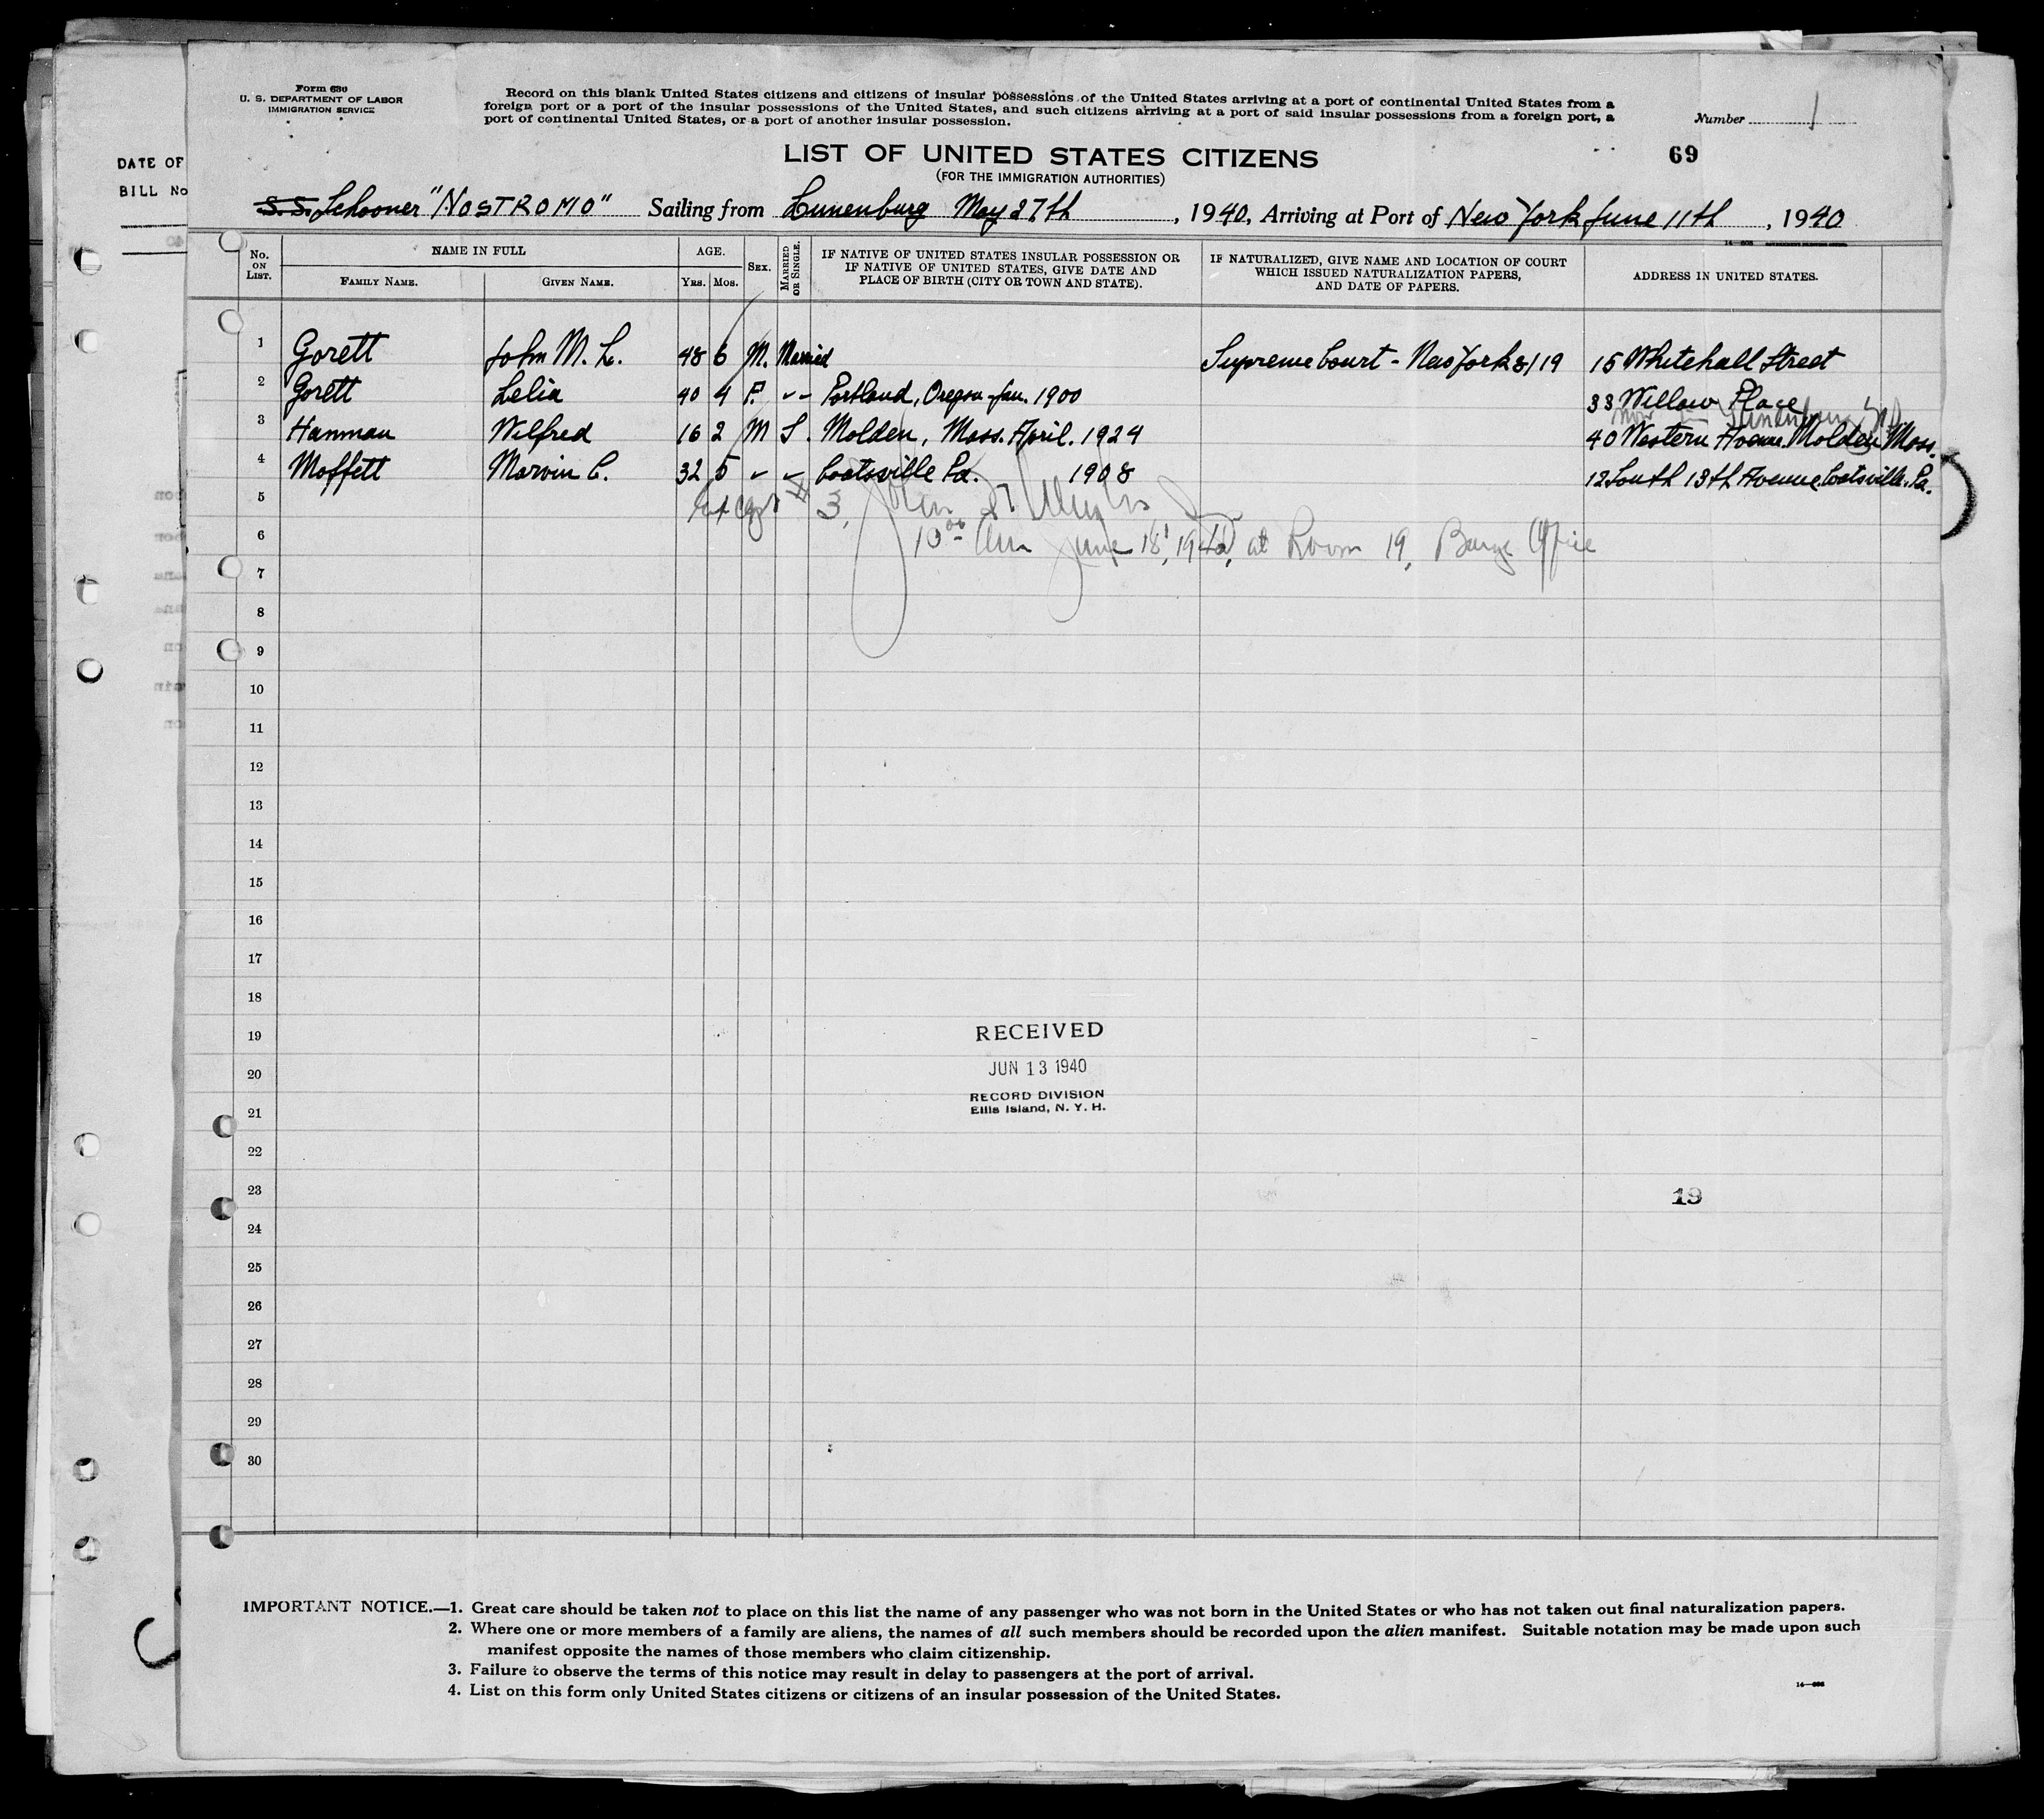 Form 630
U. S. DEPARTMENT OF LABOR
IMMIGRATION SERVICE
Record on this blank United States citizens and citizens of insular possessions of the United States arriving at a port of continental United States from a
foreign port or a port of the insular possessions of the United States, and such citizens arriving at a port of said insular possessions from a foreign port, a
port of continental United States, or a port of another insular possession.
Number 1
DATE OF
BILL No
LIST OF UNITED STATES CITIZENS
69
(FOR THE IMMIGRATION AUTHORITIES)
S. S. Schooner "NOSTROMO" Sailing from Lunenburg May 27th, 1940, Arriving at Port of New York June 11th, 1940
No. ON LIST.
NAME IN FULL
FAMILY NAME.
GIVEN NAME.
AGE.
YRS. MOS.
SEX.
MARRIED OR SINGLE.
IF NATIVE OF UNITED STATES INSULAR POSSESSION OR
IF NATIVE OF UNITED STATES, GIVE DATE AND
PLACE OF BIRTH (CITY OR TOWN AND STATE).
IF NATURALIZED, GIVE NAME AND LOCATION OF COURT
WHICH ISSUED NATURALIZATION PAPERS,
AND DATE OF PAPERS.
ADDRESS IN UNITED STATES.
1 Gorett John M. L. 48 6 M. Married Supreme Court - New York 8/19 15 Whitehall Street
2 Gorett Lelia 40 4 F. " Portland, Oregon - Jan. 1900 33 Willow Place
Lunenburg
3 Hanman Wilfred 16 2 M S. Molden, Mass. April. 1924 40 Western Avenue. Molden, Mass.
4 Moffett Marvin C. 32 5 " " Coatsville Pa. 1908 12 South 13th Avenue Coatsville. Pa.
5 3,
6 10 00 Am June 18, 1940, at Room 19, Barge Office
7
8
9
10
11
12
13
14
15
16
17
18
19
20
21
22
23
24
25
26
27
28
29
30
RECEIVED
JUN 13 1940
RECORD DIVISION
Ellis Island, N. Y. H.
19
IMPORTANT NOTICE.—1. Great care should be taken not to place on this list the name of any passenger who was not born in the United States or who has not taken out final naturalization papers.
2. Where one or more members of a family are aliens, the names of all such members should be recorded upon the alien manifest. Suitable notation may be made upon such
manifest opposite the names of those members who claim citizenship.
3. Failure to observe the terms of this notice may result in delay to passengers at the port of arrival.
4. List on this form only United States citizens or citizens of an insular possession of the United States.